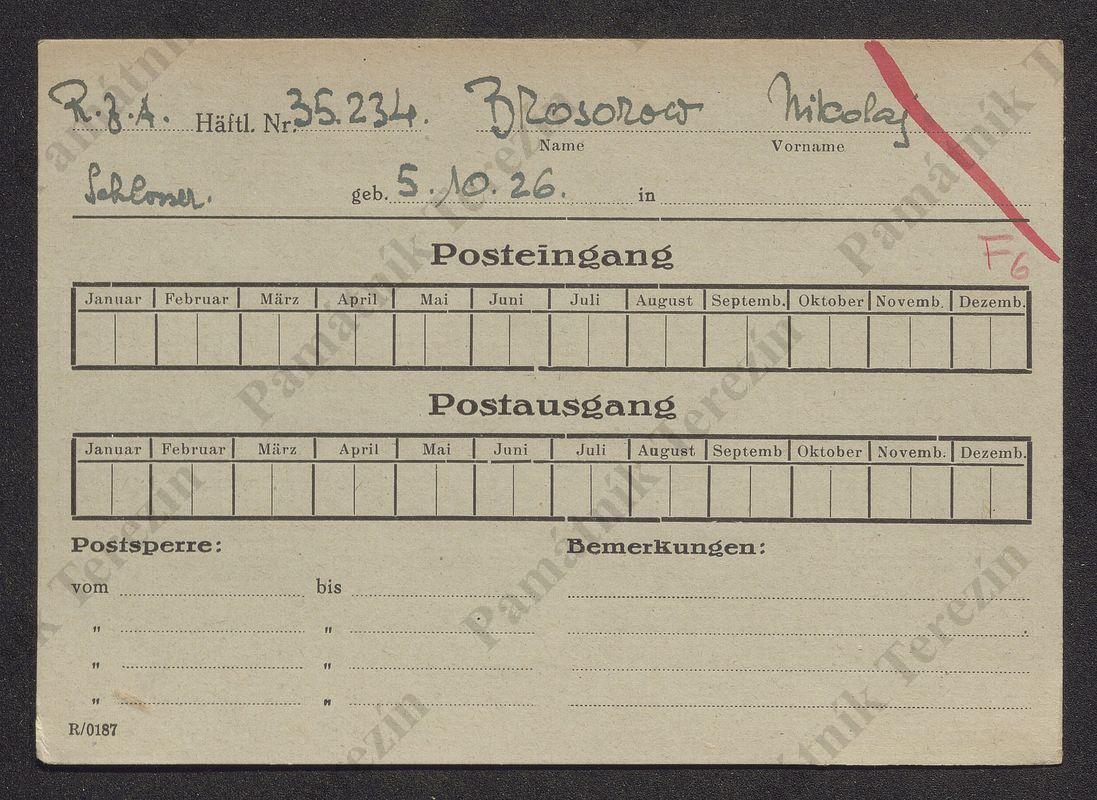 R.Z.A. Häftl. Nr. 35.234. Brosorow Nikolaj
Name Vorname
Schlosser. geb. 5.10.26. in
F6
Posteingang
Januar Februar März April Mai Juni Juli August Septemb. Oktober Novemb. Dezemb.
Postausgang
Januar Februar März April Mai Juni Juli August Septemb Oktober Novemb. Dezemb.
Postsperre: Bemerkungen:
vom bis
" "
" "
" "
R/0187
Památník Terezín